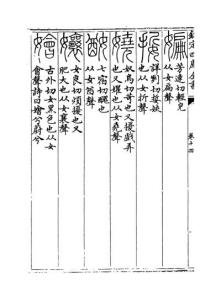 欽定四庫全書
卷十四
媥 芳連切輕皃
也从女扁聲
娎 許列切娎娎
也从女折聲
嬈 奴鳥切苛也又擾戲弄
也又嬥也从女堯聲
七宿切醜也
从女酋聲
孃 女良切煩擾也又
肥大也从女襄聲
嬒 古外切女黑色也从女
會聲詩曰嬒兮蔚兮